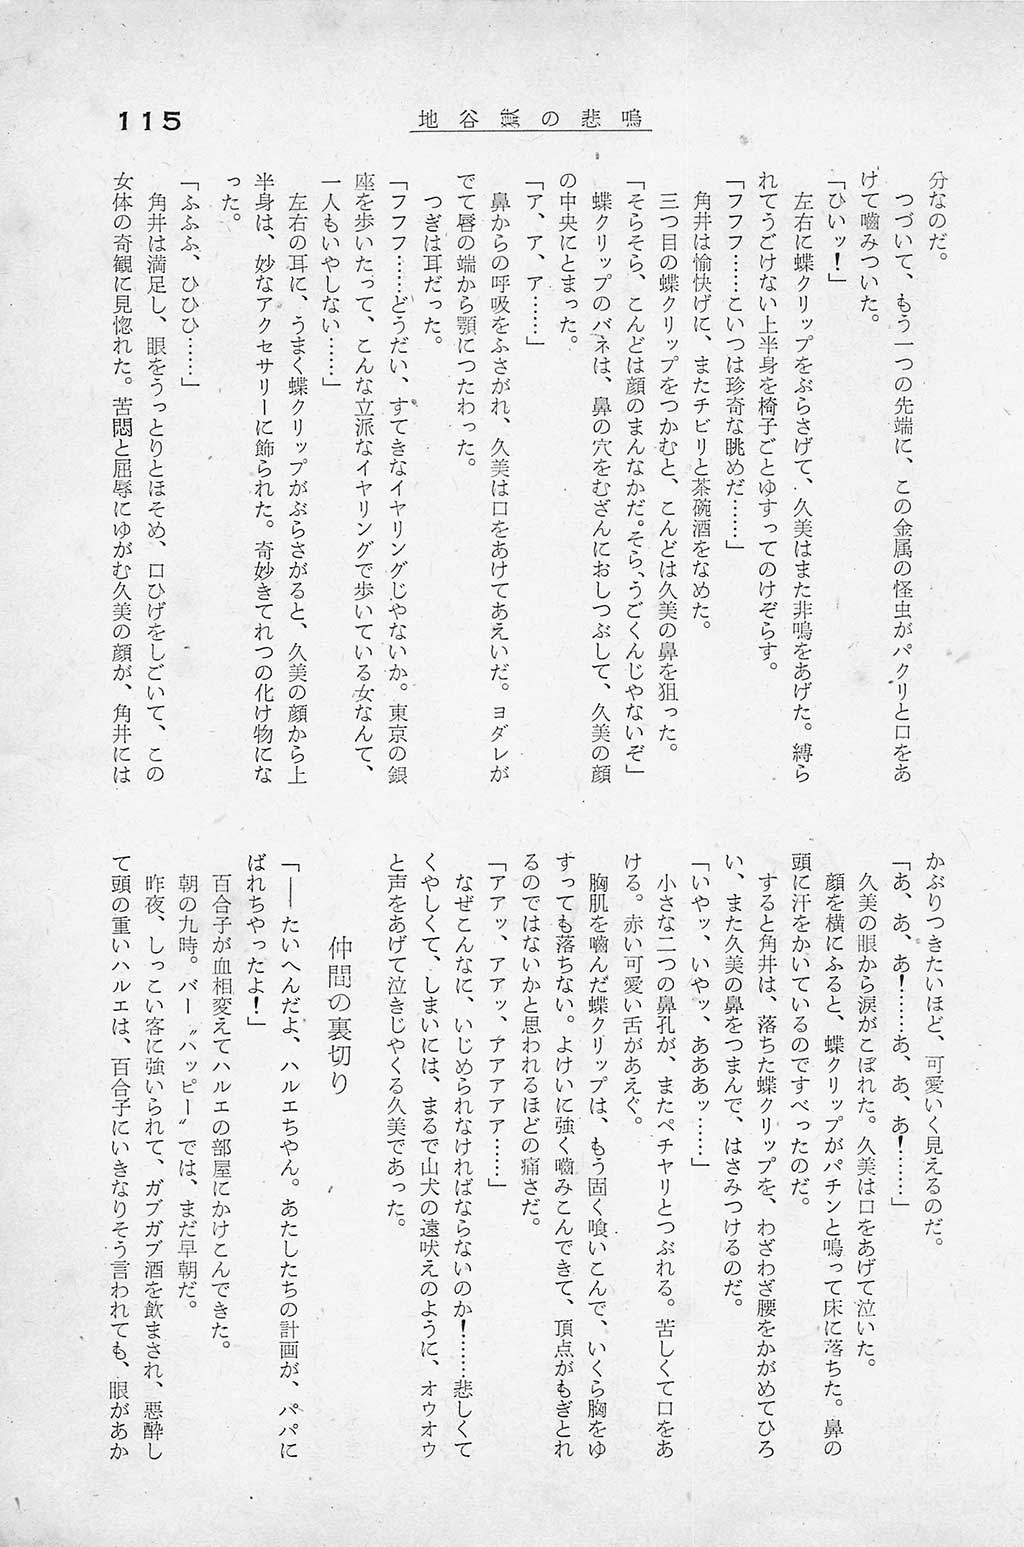 115
地谷の悲鳴
分なのだ。
つづいて、もう一つの先端に、この金属の怪虫がパクリと口をあ
けて嚙みついた。
「ひいッ！」
左右に蝶クリップをぶらさげて、久美はまた非鳴をあげた。縛ら
れてうごけない上半身を椅子ごとゆすってのけぞらす。
「フフフ……こいつは珍奇な眺めだ……」
角井は愉快げに、またチビリと茶碗酒をなめた。
三つ目の蝶クリップをつかむと、こんどは久美の鼻を狙った。
「そらそら、こんどは顔のまんなかだ。そら、うごくんじゃないぞ」
蝶クリップのバネは、鼻の穴をむざんにおしつぶして、久美の顔
の中央にとまった。
「ア、ア、ア……」
鼻からの呼吸をふさがれ、久美は口をあけてあえいだ。ヨダレが
でて唇の端から顎につたわった。
つぎは耳だった。
「フフフ……どうだい、すてきなイヤリングじゃないか。東京の銀
座を歩いたって、こんな立派なイヤリングで歩いている女なんて、
一人もいやしない……」
左右の耳に、うまく蝶クリップがぶらさがると、久美の顔から上
半身は、妙なアクセサリーに飾られた。奇妙きてれつの化け物にな
った。
「ふふふ、ひひひ……」
角井は満足し、眼をうっとりとほそめ、口ひげをしごいて、この
女体の奇観に見惚れた。苦悶と屈辱にゆがむ久美の顔が、角井には
かぶりつきたいほど、可愛いく見えるのだ。
「あ、あ、あ！……あ、あ、あ！……」
久美の眼から涙がこぼれた。久美は口をあげて泣いた。
顔を横にふると、蝶クリップがパチンと鳴って床に落ちた。鼻の
頭に汗をかいているのですべったのだ。
すると角井は、落ちた蝶クリップを、わざわざ腰をかがめてひろ
い、また久美の鼻をつまんで、はさみつけるのだ。
「いやッ、いやッ、あああッ……」
小さな二つの鼻孔が、またペチャリとつぶれる。苦しくて口をあ
ける。赤い可愛い舌があえぐ。
胸肌を嚙んだ蝶クリップは、もう固く喰いこんで、いくら胸をゆ
すっても落ちない。よけいに強く嚙みこんできて、頂点がもぎとれ
るのではないかと思われるほどの痛さだ。
「アアッ、アアッ、アアアア……」
なぜこんなに、いじめられなければならないのか！……悲しくて
くやしくて、しまいには、まるで山犬の遠吠えのように、オウオウ
と声をあげて泣きじゃくる久美であった。
仲間の裏切り
「――たいへんだよ、ハルエちゃん。あたしたちの計画が、パパに
ばれちやったよ！」
百合子が血相変えてハルエの部屋にかけこんできた。
朝の九時。バー〝ハッピー〟では、まだ早朝だ。
昨夜、しっこい客に強いられて、ガブガブ酒を飲まされ、悪酔し
て頭の重いハルエは、百合子にいきなりそう言われても、眼があか